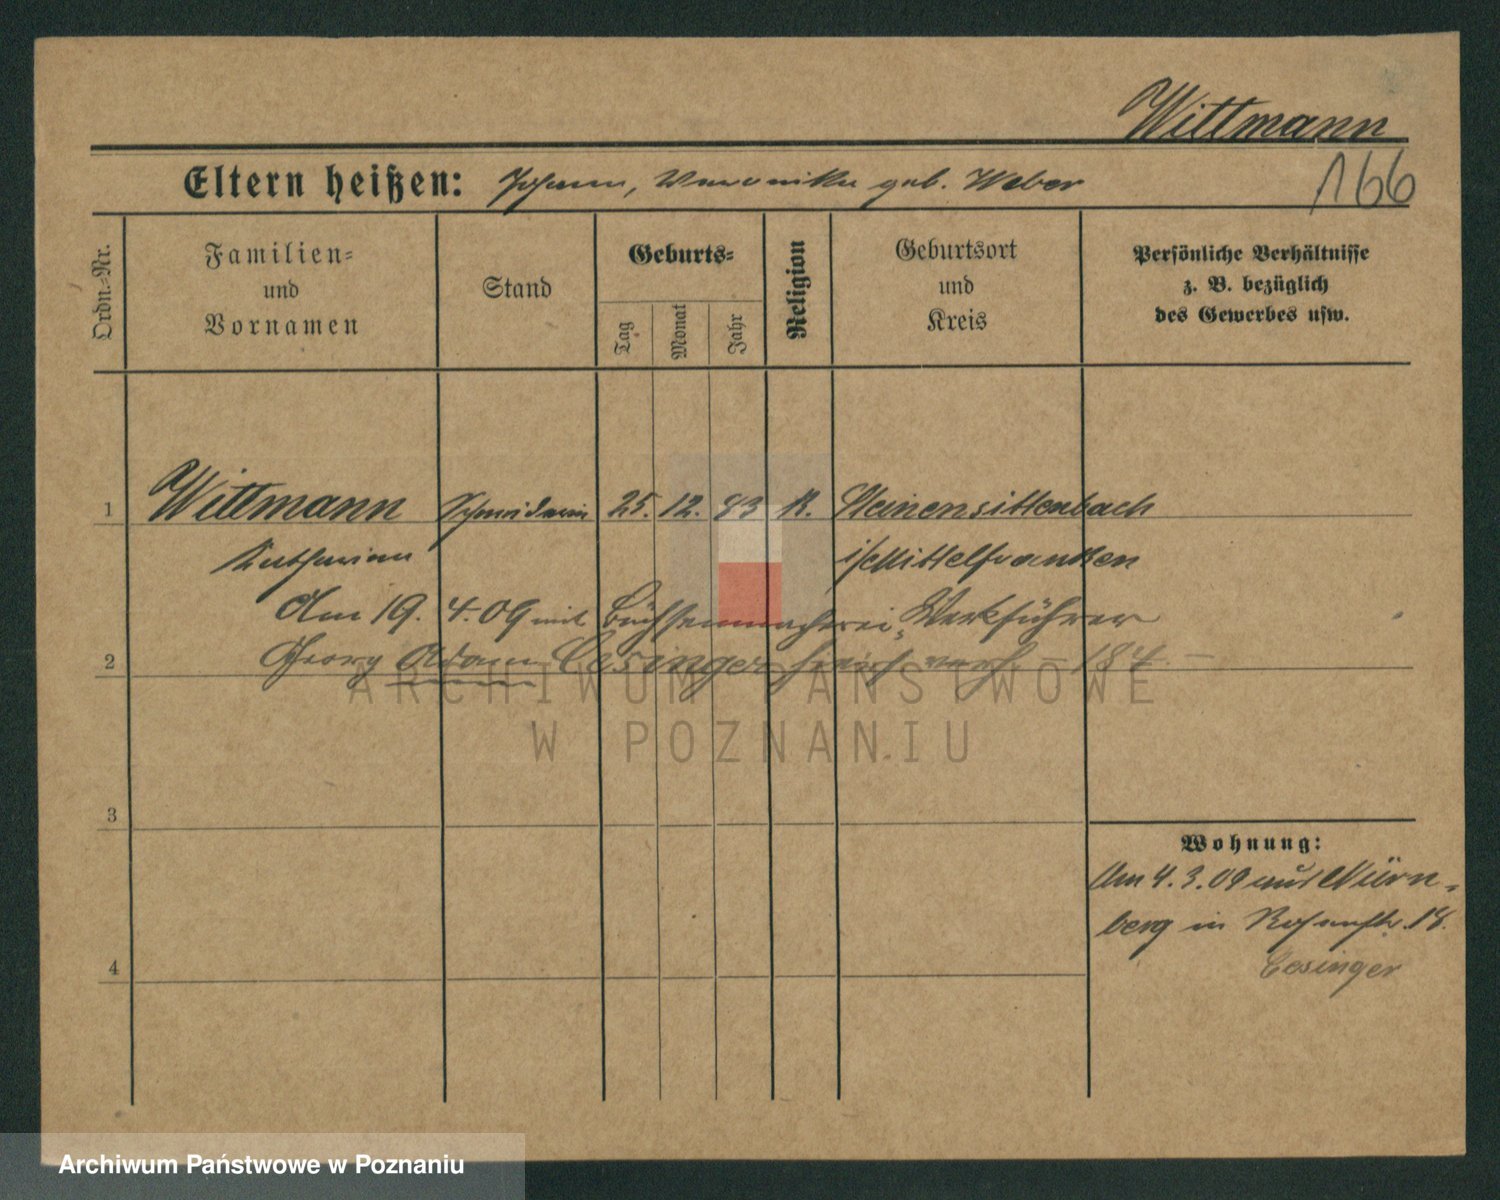 Wittmann
166
Eltern heißen: Johann, Veronika geb. Weber
Ordn.-Nr.
Familien-
und
Vornamen
Stand
Geburts-
Tag
Monat
Jahr
Religion
Geburtsort
und
Kreis
Persönliche Verhältnisse
z. B. bezüglich
des Gewerbes usw.
1 Wittmann Schneiderin 25. 12. 83 K. Kleinensittenbach
Katharina i/Mittelfranken
Am 19. 4. 09 mit Büchsenmacherei-Werkführer
2 Georg Adam Cesinger hier verh
3
4
Wohnung:
Am 4. 3. 09 aus Nürn-
berg in 18.
Cesinger
ARCHIWUM PAŃSTWOWE
W POZNANIU
Archiwum Państwowe w Poznaniu